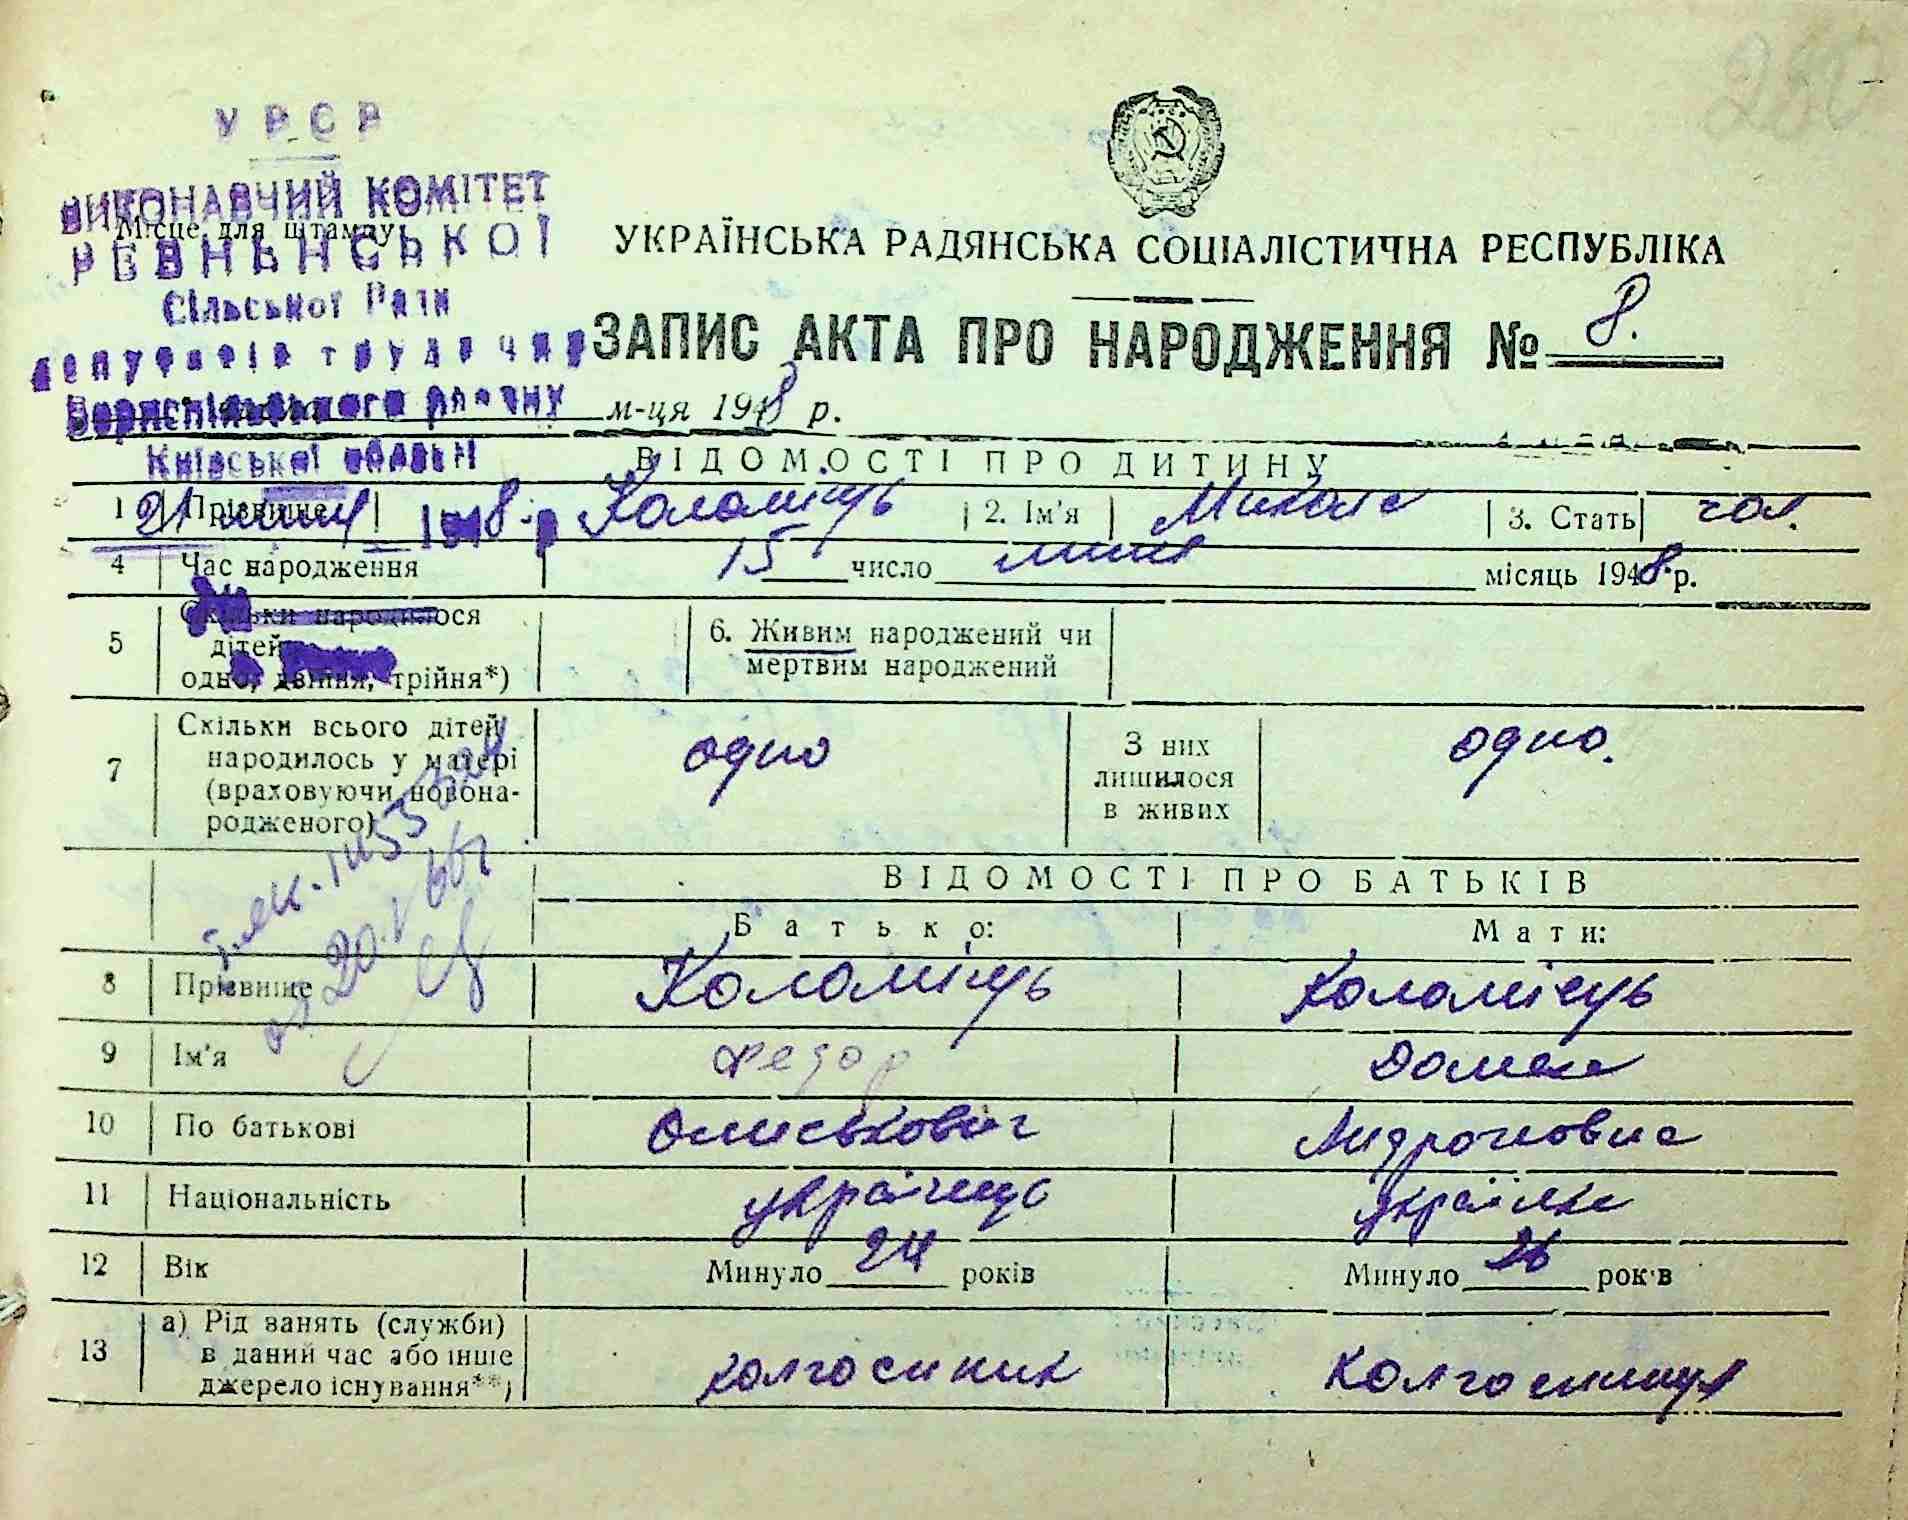 280
УРСР
ВИКОНАВЧИЙ КОМІТЕТ
Місце для штампу
РЕВНЕНСЬКОЇ
Сільської Ради
депутатів трудящих
Бориспільського району
Київської області
21 липня 1948 р
УКРАЇНСЬКА РАДЯНСЬКА СОЦІАЛІСТИЧНА РЕСПУБЛІКА
ЗАПИС АКТА ПРО НАРОДЖЕННЯ № 8.
м-ця 1948 р.
ВІДОМОСТІ ПРО ДИТИНУ
1 Прізвище Коломієць 2. Ім'я Микола 3. Стать чол.
4 Час народження 15 число липня місяць 1948 р.
5 Скільки народилося
дітей
одно, двійня, трійня*)
6. Живим народжений чи
мертвим народжений
7 Скільки всього дітей
народилось у матері
(враховуючи новона-
родженого)
одно
З них
лишилося
в живих
одно.
20.
ВІДОМОСТІ ПРО БАТЬКІВ
Батько: Мати:
8 Прізвище Коломієць Коломієць
9 Ім'я Федор Домна
10 По батькові
11 Національність українець українка
12 Вік Минуло 24 років Минуло 26 років
13 а) Рід занять (служби)
в даний час або інше
джерело існування**)
колгоспник колгоспниця